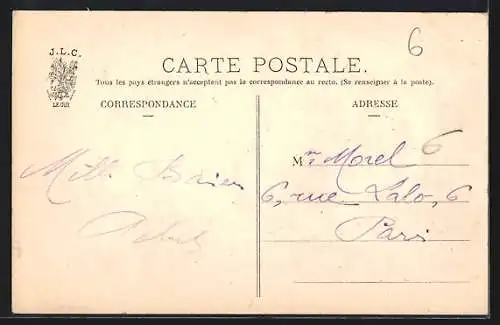 6
J.L.C.
CARTE POSTALE.
Tous les pays étrangers n'acceptent pas la correspondance au recto. (Se renseigner à la poste).
CORRESPONDANCE
ADRESSE
Mille
Mr Morel 6
6, rue Lalo, 6
Paris